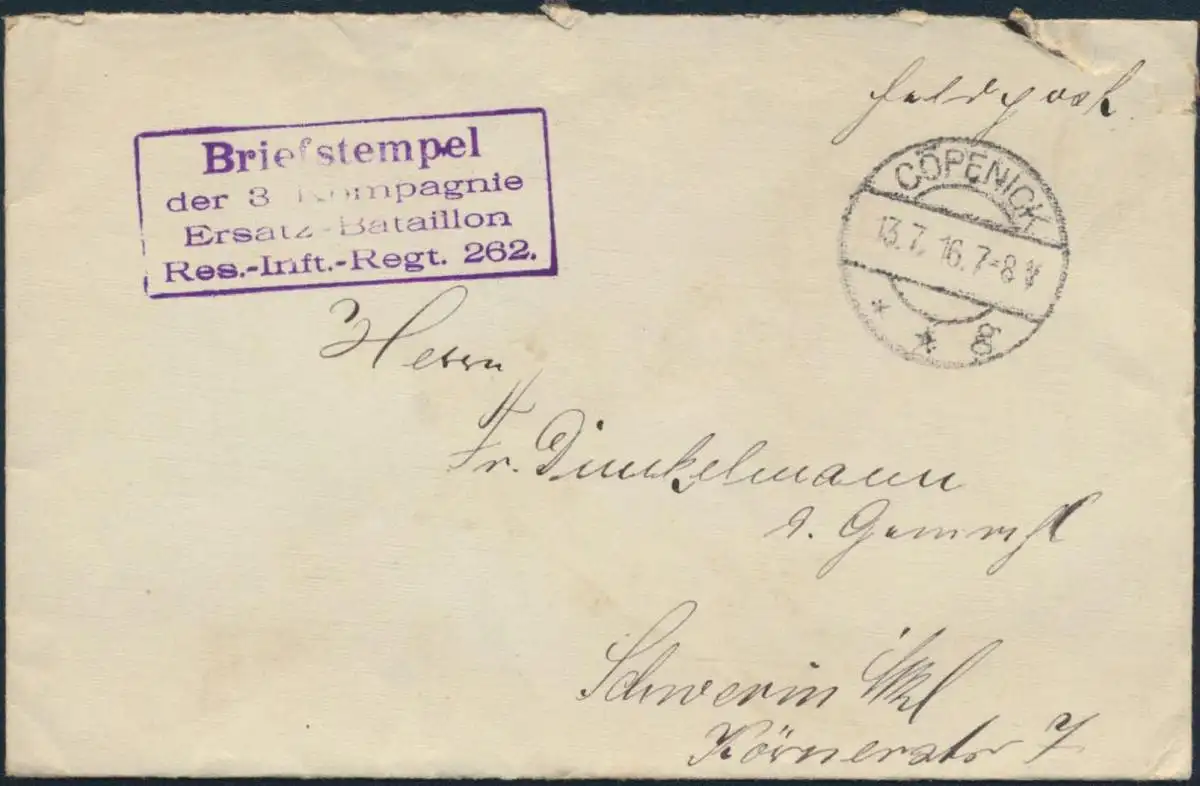 Feldpost
Briefstempel
der 3. Kompagnie
Ersatz-Bataillon
Res.-Inft.-Regt. 262.
CÖPENICK
13.7.16.7-8 V
* * g
Herrn
Fr. Dunkelmann
Schwerin i/Mkl
Körnerstr 7